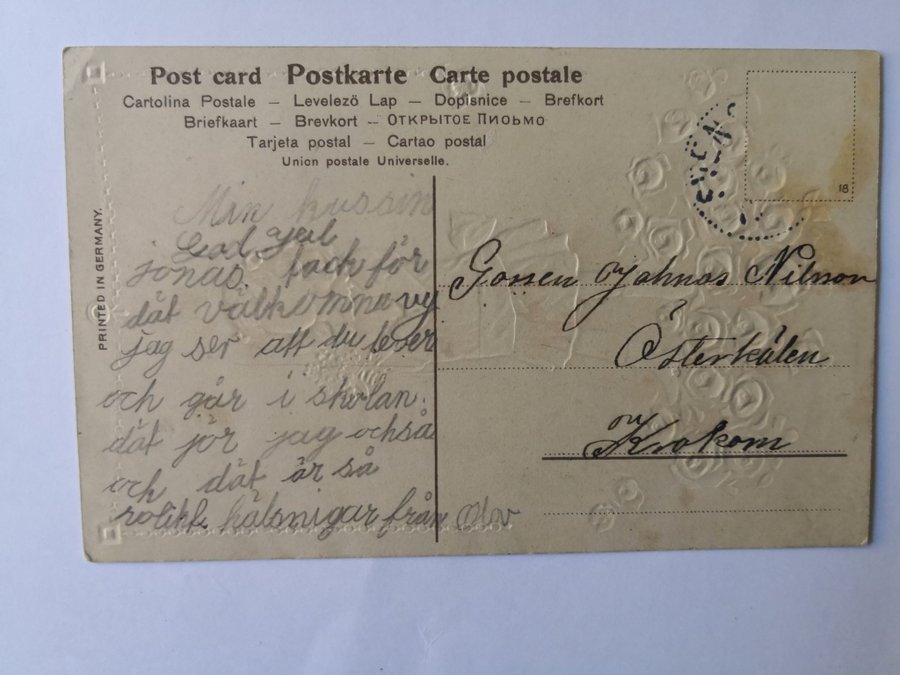 Post card Postkarte Carte postale
Cartolina Postale – Levelező Lap – Dopisnice – Brefkort
Briefkaart – Brevkort – ОТКРЫТОЕ ПИСЬМО
Tarjeta postal – Cartao postal
Union postale Universelle.
PRINTED IN GERMANY.
18
Min kussin
God jul
jonas. tack för
dät välkomne vy
jag ser att du lever
och går i skolan.
dät jör jag ochså
och dät är så
rolikt hälsnigar från Olov
Gossen Johnas Nilson
Österkälen
Krokom